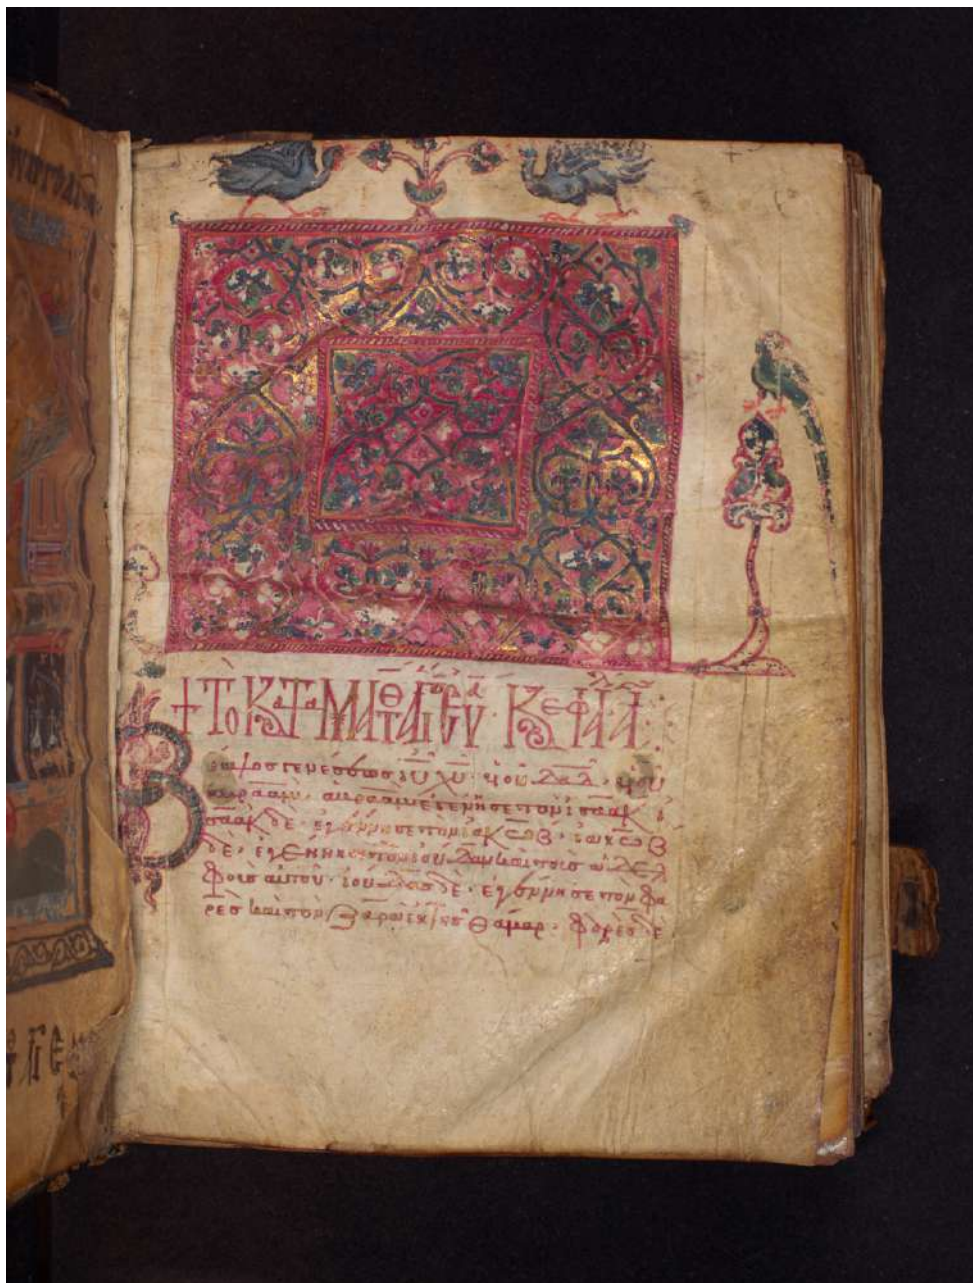 + ΤὸΚατὰΜΑΤΘ ἍΓΙΟΝ ΕΥΑ ΚΕΦΑΛ Α
Βίβλος γενέσεως ῑῡ χ̄ῡ· υἱοῦ δᾱδ̄· υἱοῦ
ἀβραάμ· ἀβραὰμ ἐγέννησε τὸν ἰσαάκ· ἰ
σαὰκ δὲ· ἐγέννησε τὸν ἰακώβ· ἰακὼβ
δὲ· ἐγέννησε τὸν ἰούδαν καὶ τοὺς ἀδελ
φοὺς αὐτοῦ· ἰούδας δὲ· ἐγέννησε τὸν φα
ρὲς καὶ τὸν ζαρὰ ἐκ τῆς θάμαρ· φαρὲς δὲ